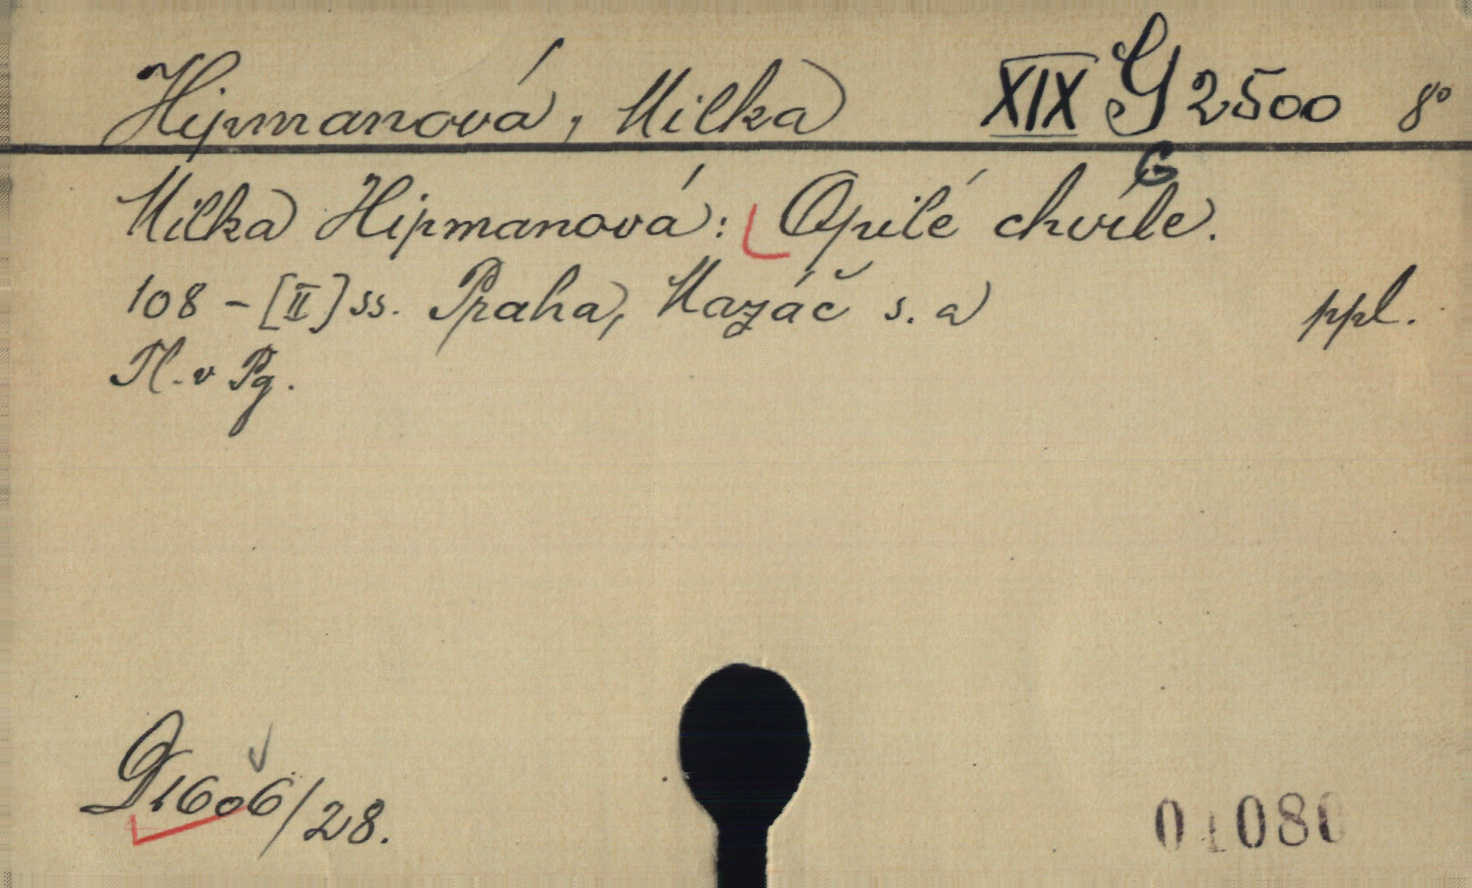 Hipmanová, Milka XIX G 2500 8°
G
Milka Hipmanová: Opilé chvíle.
108 - [II] ss. Praha, Mazáč s. a ppl.
Pl. v Pg.
D1606/28.
01080